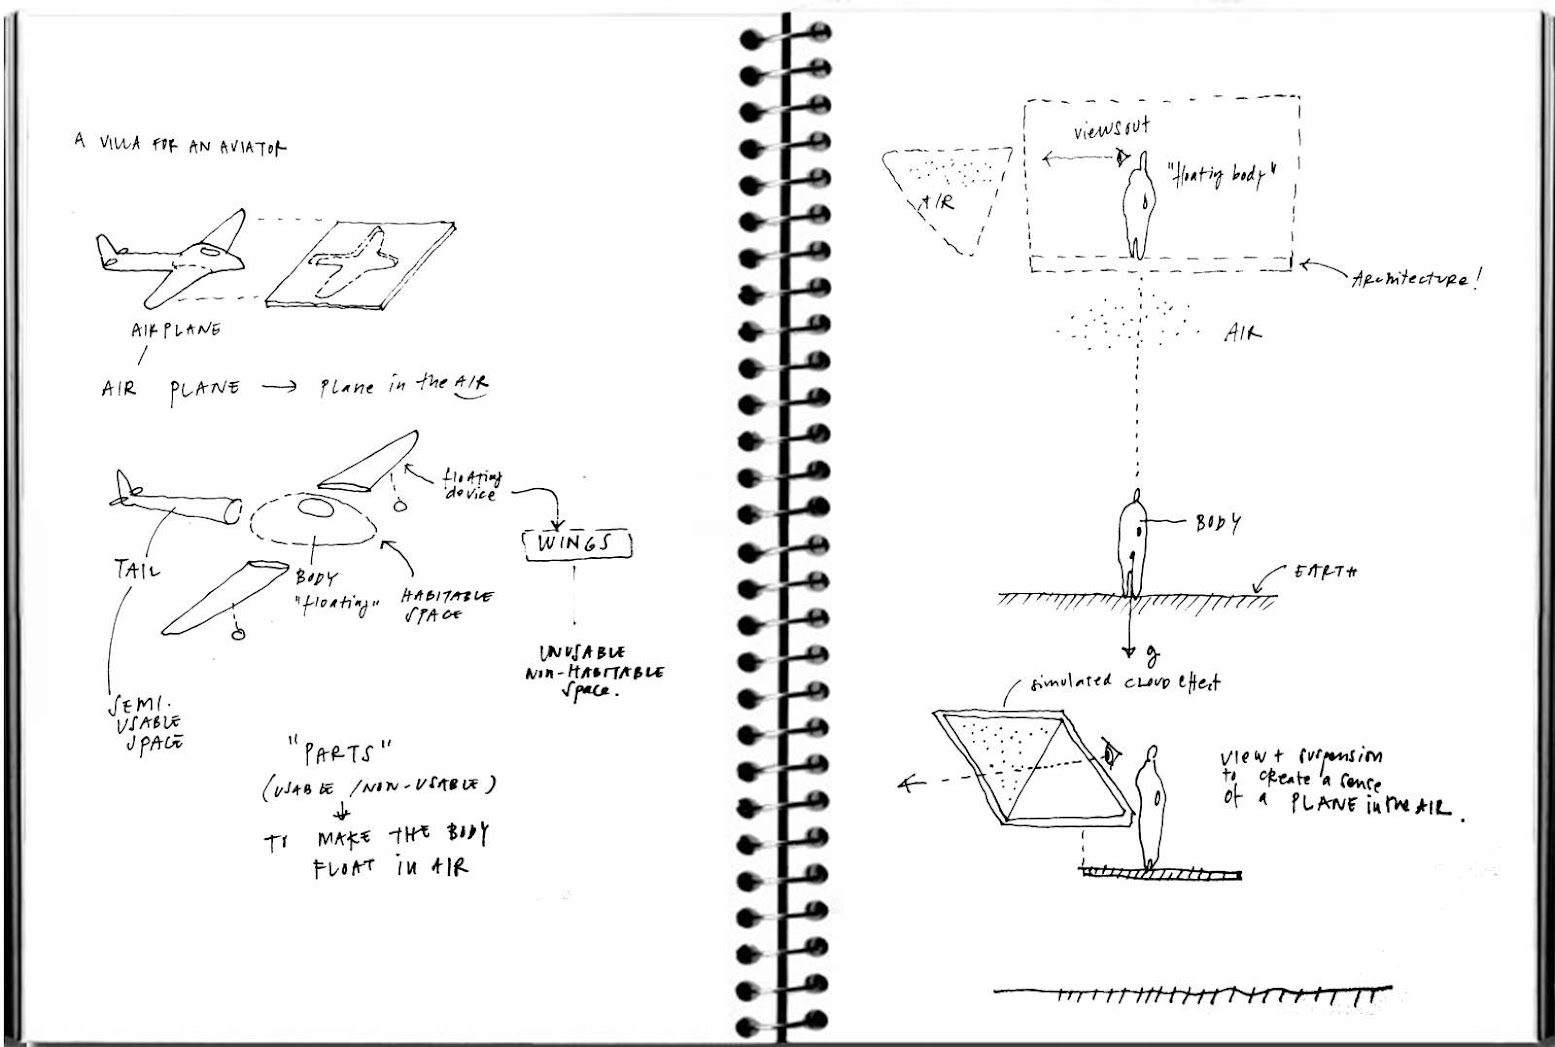 A VILLA FOR AN AVIATOR
AIRPLANE
AIR PLANE → PLANE in the AIR
floating
device
WINGS
TAIL
BODY
"floating"
HABITABLE
SPACE
UNUSABLE
NON-HABITABLE
Space.
SEMI.
USABLE
SPACE
"PARTS"
(USABLE /NON-USABLE)
TO MAKE THE BODY
FLOAT in AIR
views out
AIR
"floating body"
ARchitecture!
AIR
BODY
EARTH
g
simulated CLOUD effect
view + suspension
to create a sense
of a PLANE in the AIR.